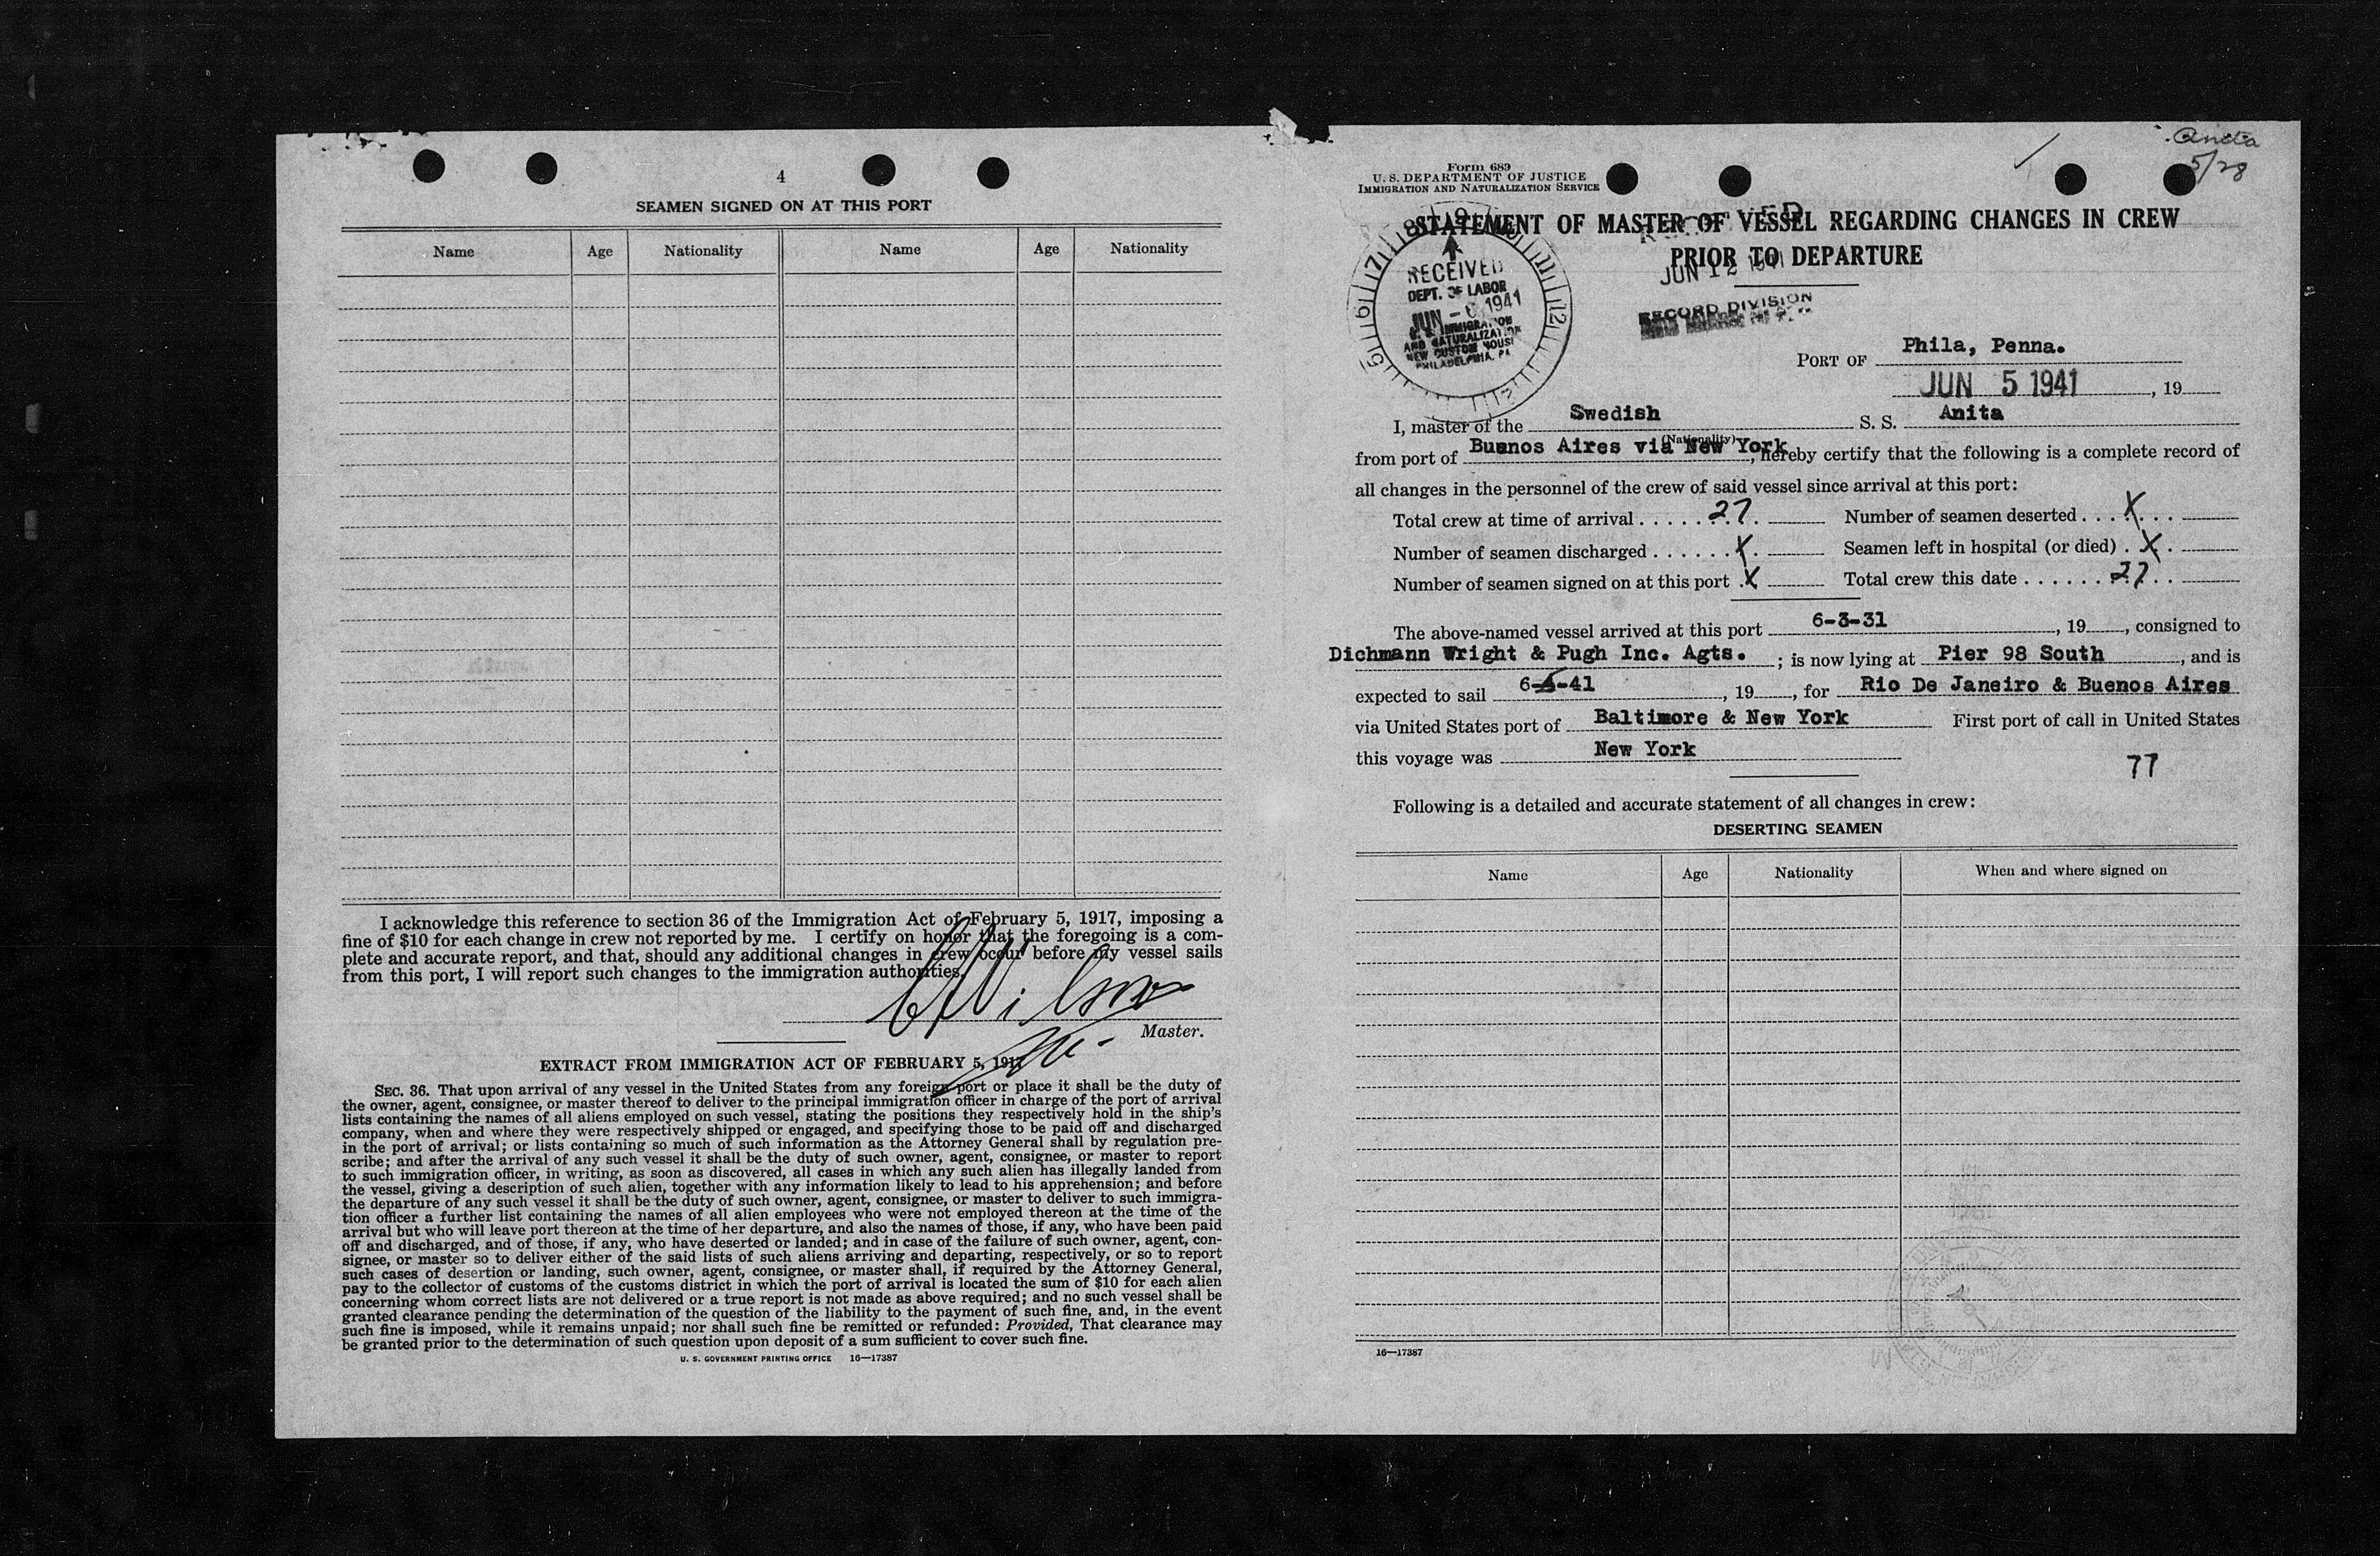 4
SEAMEN SIGNED ON AT THIS PORT
Name Age Nationality Name Age Nationality
I acknowledge this reference to section 36 of the Immigration Act of February 5, 1917, imposing a
fine of $10 for each change in crew not reported by me. I certify on honor that the foregoing is a com-
plete and accurate report, and that, should any additional changes in crew occur before my vessel sails
from this port, I will report such changes to the immigration authorities.
Master.
EXTRACT FROM IMMIGRATION ACT OF FEBRUARY 5, 1917
SEC. 36. That upon arrival of any vessel in the United States from any foreign port or place it shall be the duty of
the owner, agent, consignee, or master thereof to deliver to the principal immigration officer in charge of the port of arrival
lists containing the names of all aliens employed on such vessel, stating the positions they respectively hold in the ship's
company, when and where they were respectively shipped or engaged, and specifying those to be paid off and discharged
in the port of arrival; or lists containing so much of such information as the Attorney General shall by regulation pre-
scribe; and after the arrival of any such vessel it shall be the duty of such owner, agent, consignee, or master to report
to such immigration officer, in writing, as soon as discovered, all cases in which any such alien has illegally landed from
the vessel, giving a description of such alien, together with any information likely to lead to his apprehension; and before
the departure of any such vessel it shall be the duty of such owner, agent, consignee, or master to deliver to such immigra-
tion officer a further list containing the names of all alien employees who were not employed thereon at the time of the
arrival but who will leave port thereon at the time of her departure, and also the names of those, if any, who have been paid
off and discharged, and of those, if any, who have deserted or landed; and in case of the failure of such owner, agent, con-
signee, or master so to deliver either of the said lists of such aliens arriving and departing, respectively, or so to report
such cases of desertion or landing, such owner, agent, consignee, or master shall, if required by the Attorney General,
pay to the collector of customs of the customs district in which the port of arrival is located the sum of $10 for each alien
concerning whom correct lists are not delivered or a true report is not made as above required; and no such vessel shall be
granted clearance pending the determination of the question of the liability to the payment of such fine, and, in the event
such fine is imposed, while it remains unpaid; nor shall such fine be remitted or refunded: Provided, That clearance may
be granted prior to the determination of such question upon deposit of a sum sufficient to cover such fine.
U. S. GOVERNMENT PRINTING OFFICE 16—17387
Anita
5/28
Form 689
U. S. DEPARTMENT OF JUSTICE
IMMIGRATION AND NATURALIZATION SERVICE
STATEMENT OF MASTER OF VESSEL REGARDING CHANGES IN CREW
PRIOR TO DEPARTURE
JUN 12 1941
RECORD DIVISION
RECEIVED
DEPT. OF LABOR
JUN - 6 1941
IMMIGRATION
AND NATURALIZATION
NEW CUSTOM HOUSE
PHILADELPHIA, PA
PORT OF Phila, Penna.
JUN 5 1941, 19
I, master of the Swedish S. S. Anita
(Nationality)
from port of Buenos Aires via New York, hereby certify that the following is a complete record of
all changes in the personnel of the crew of said vessel since arrival at this port:
Total crew at time of arrival 27 Number of seamen deserted X
Number of seamen discharged X Seamen left in hospital (or died) X
Number of seamen signed on at this port X Total crew this date 27
The above-named vessel arrived at this port 6-3-31, 19, consigned to
Dichmann Wright & Pugh Inc. Agts. ; is now lying at Pier 98 South, and is
expected to sail 6-5-41, 19, for Rio De Janeiro & Buenos Aires
via United States port of Baltimore & New York First port of call in United States
this voyage was New York
77
Following is a detailed and accurate statement of all changes in crew:
DESERTING SEAMEN
Name Age Nationality When and where signed on
16—17387